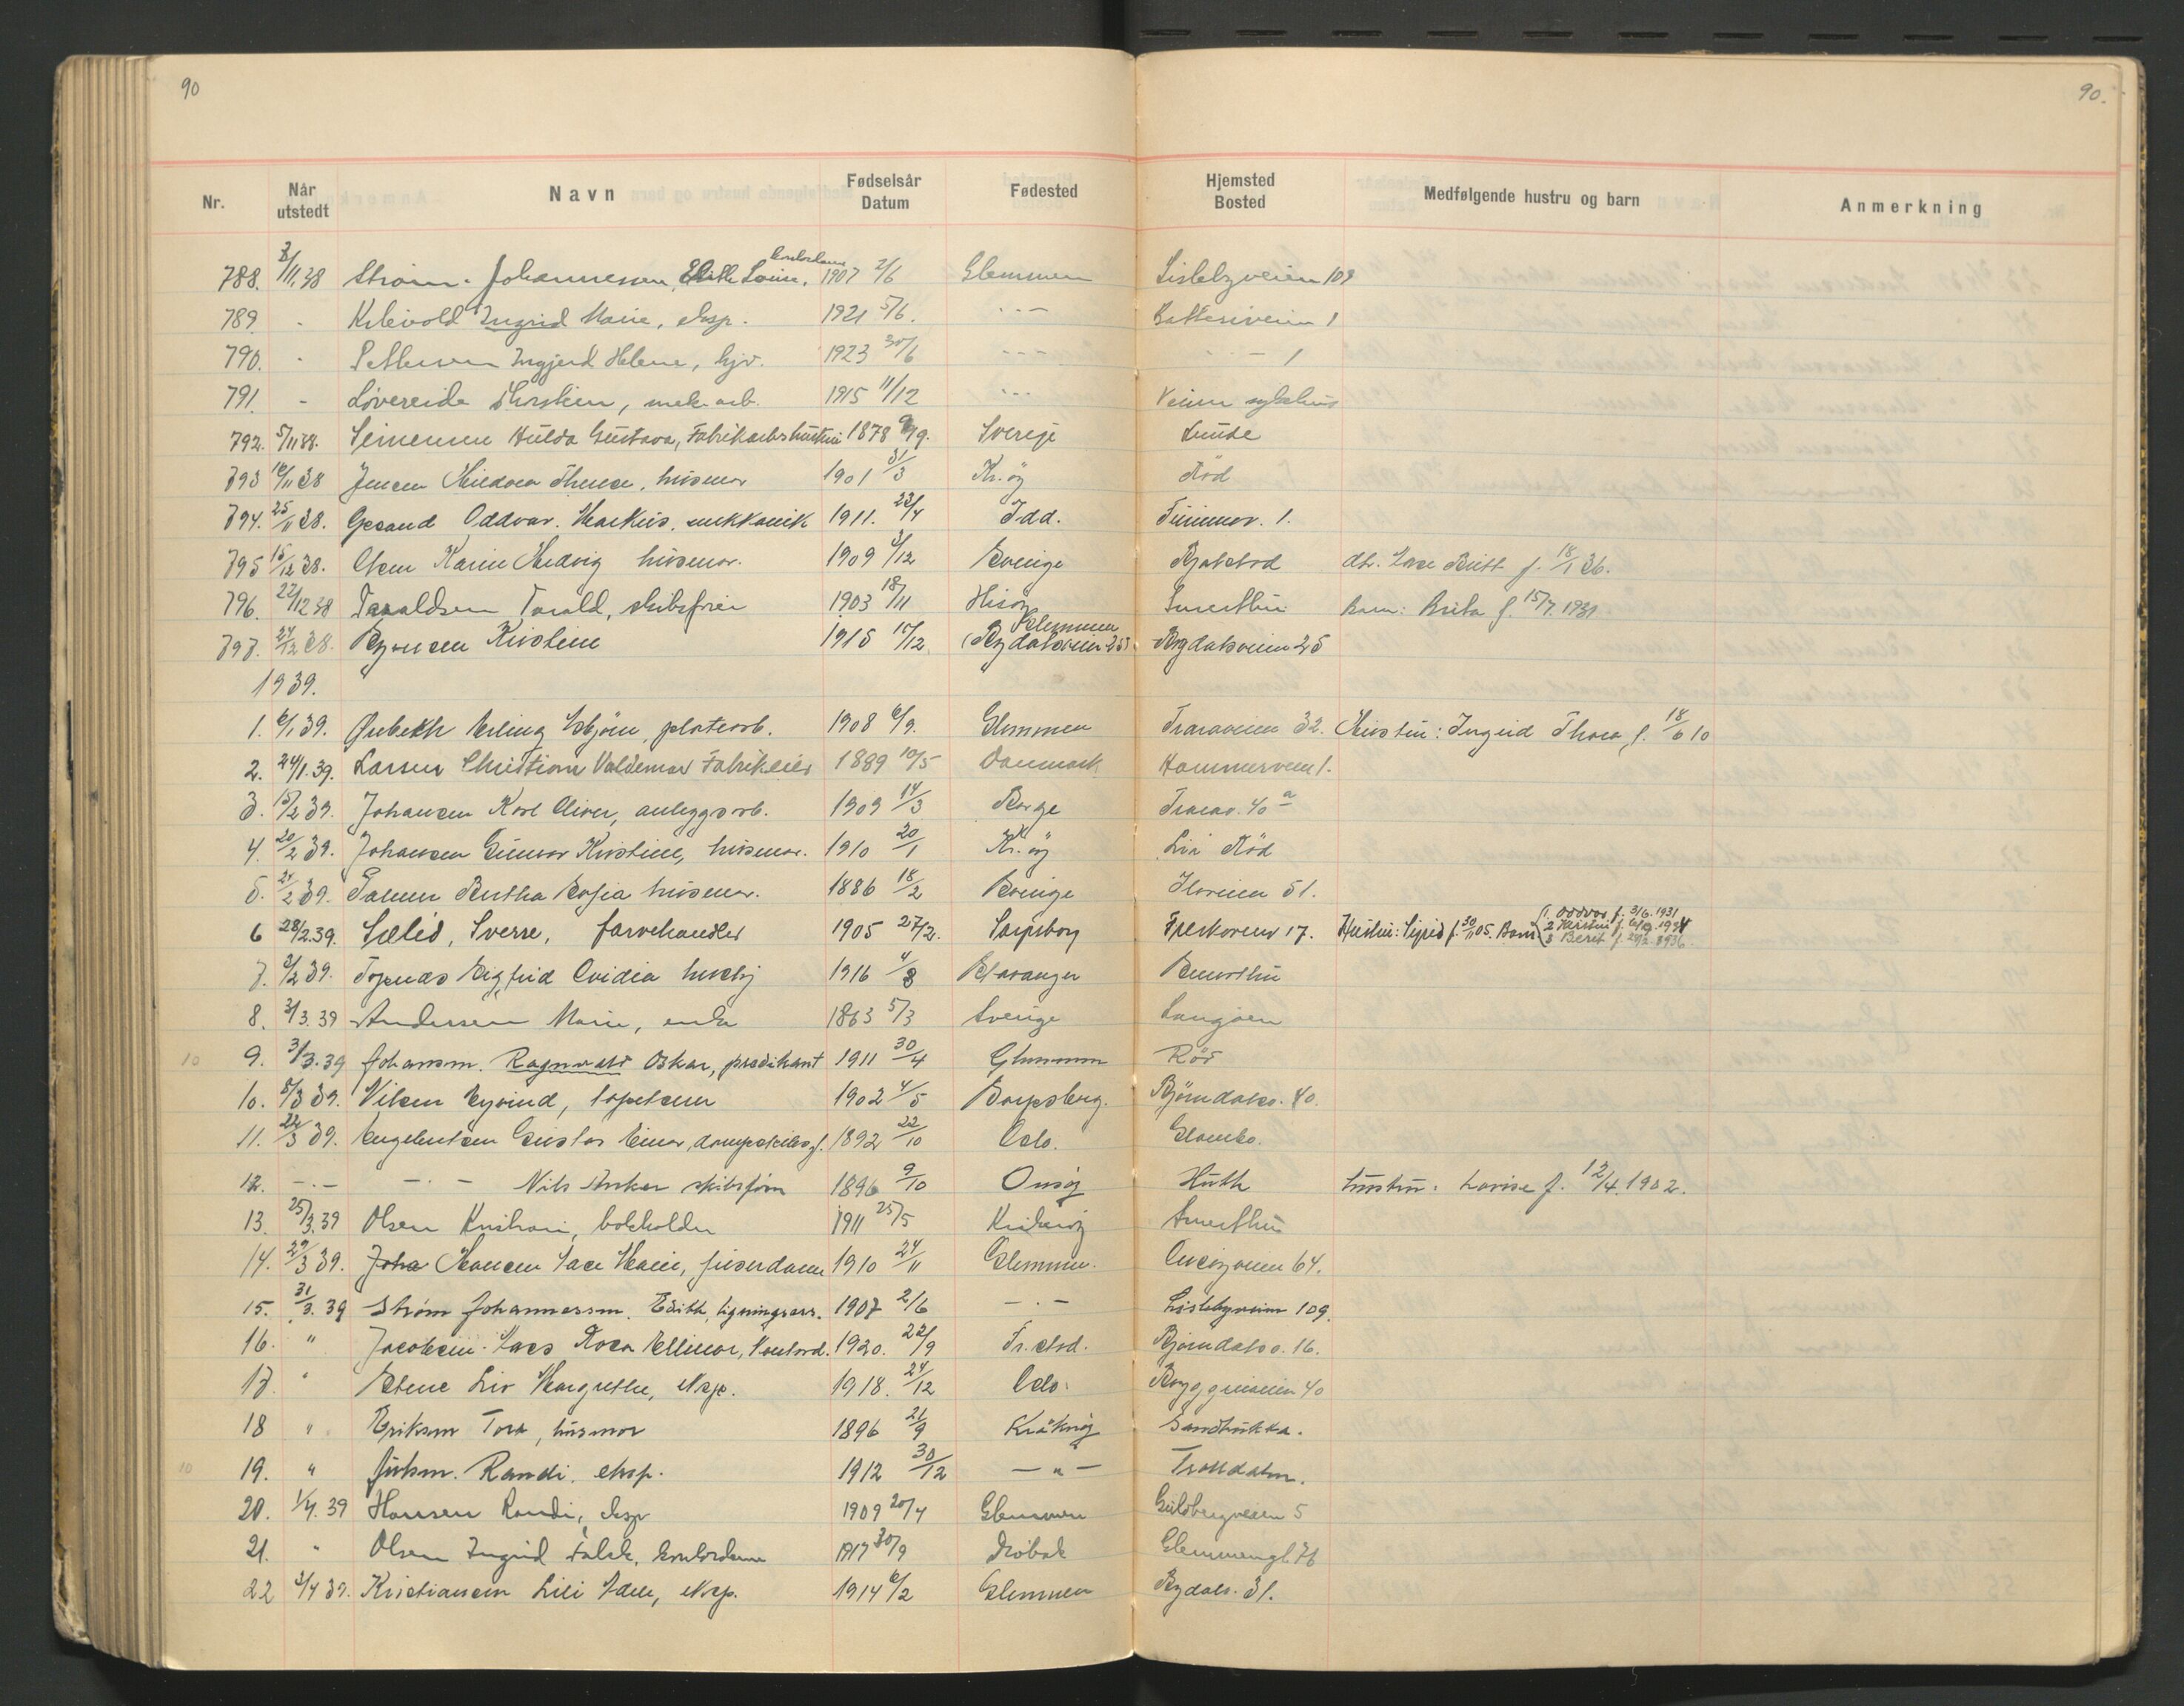 90
90.
Nr. Når utstedt Navn Fødselsår Datum Fødested Hjemsted Bosted Medfølgende hustru og barn Anmerkning
788. 3/11.38 Strøm-Johannessen, Edith Louise, kontordame 1907 2/6 Glemmen Lislebyveien 109
789. - Ingrid Marie, eksp. 1921 5/6. - - - Batteriveien 1
790. - Pettersen Ingjerd Helene, hjv. 1923 30/6 - - - - - 1
791. - Løvereide Thorstein, mek. arb. 1915 11/12 - - - Veum sykehus
792. 5/11 38. Hulda Gustava, Fabrikarbshustru 1878 /9. Sverige Lunde
793 16/11 38 Jensen Hildora Therese, husmor 1901 31/3 Kr.øy Rød
794. 25/11 38. Oddvar Markus, mekkanik 1911. 23/4 Idd. 1.
795 15/12 38. Olsen Karin Hedvig husmor. 1909 /12 Sverige dt. Else Britt f. 18/1 36.
796. 22/12 38 Taraldsen Torald, skibsfører 1903 18/11 Hisøy Smerthu Barn: Brita f. 15/7. 1931
797. 24/12 38. Kristine 1915 17/12 Glemmen 25 25
1939.
1. 6/1 39. Ørebekk Erling Esbjørn, platearb. 1908 6/9. Glemmen Traraveien 32. Hustru: Ingrid Thora, f. 18/6 10
2. 24/1.39. Larsen Christian Valdemar Fabrikeier 1889 10/5 Danmark Hammerveien 1.
3. 15/2 39. Johansen Karl Oliver, anleggsarb. 1909 14/3 Borge Trarav. 40 a
4. 20/2 39. Johansen Gunvor Kristine, husmor. 1910 20/1 Kr. øy Lia Rød
5. 24/2 39. Bertha Sofia husmor. 1886 18/2 Sverige 51.
6 28/2.39. Sælid, Sverre, farvehandler 1905 27/2. Sarpsborg 17. Hustru: Sigrid f. 30/11 05. Barn (1 Oddvar f. 3/6. 1931
2 Kirsten f. 6/9. 1934
3 Berit f. 1936
7. 2/2 39. Topnæs Sigfrid Ovidia hushj 1916 4/8 Stavanger Smerthu
8. 3/3.39 Andersen Marie, enke 1863 5/3 Sverige Langøen
10 9. 3/3.39 Johansen. Ragnvald Oskar, predikant 1911 30/4 Glemmen Rød
10. 8/3 39. Eyvind, tapetserer 1902 4/5 Sarpsborg. Bjørndalsv. 40.
11. 22/3 39. Engebretsen Gustav Einar, dampskibsf. 1892 22/10 Oslo. Glombo.
12. -.- -.- Nils Anker skibsfører 1896 9/10 Onsøy Huth hustru. Lovise f. 12/4. 1902.
13. 25/3.39 Olsen Kristian, bokholder 1911 25/5 Kråkerøy Smerthu
14. 29/3 39. Joha Hansen Åse Marie, frisørdame 1910 24/11 Glemmen. Onsøyveien 64.
15. 31/3.39 Strøm Johannessen. Edith, ligningsass. 1907 2/6 -.- Lislebyveien 109.
16. " Jacobsen Rosa Ellinor, kontord. 1920. 22/9 Fr.stad. Bjørndalsv. 16.
17. " Stene Liv Margrethe, eksp. 1918. 24/12 Oslo. Bryggeriveien 40
18 " Eriksen Tora, husmor 1896 21/9 Kråkerøy Sandbukka.
10 19. " Juksen. Randi, eksp. 1912 30/12 - " - Trolldalen.
20. 1/4. 39 Hansen Randi, eksp 1909 20/4 Glemmen Guldbergveien 5
21. " Olsen Ingrid Falck, kontordame 1917 30/9 Drøbak Glemmengt. 76
22 3/4 39. Kristiansen Lili Adele, eksp. 1914 6/2 Glemmen Bydals. 31.